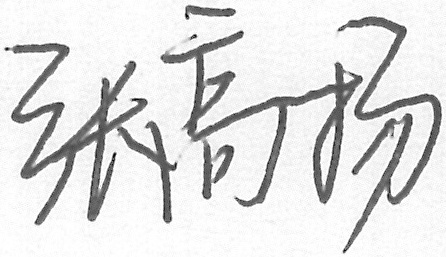 张高扬